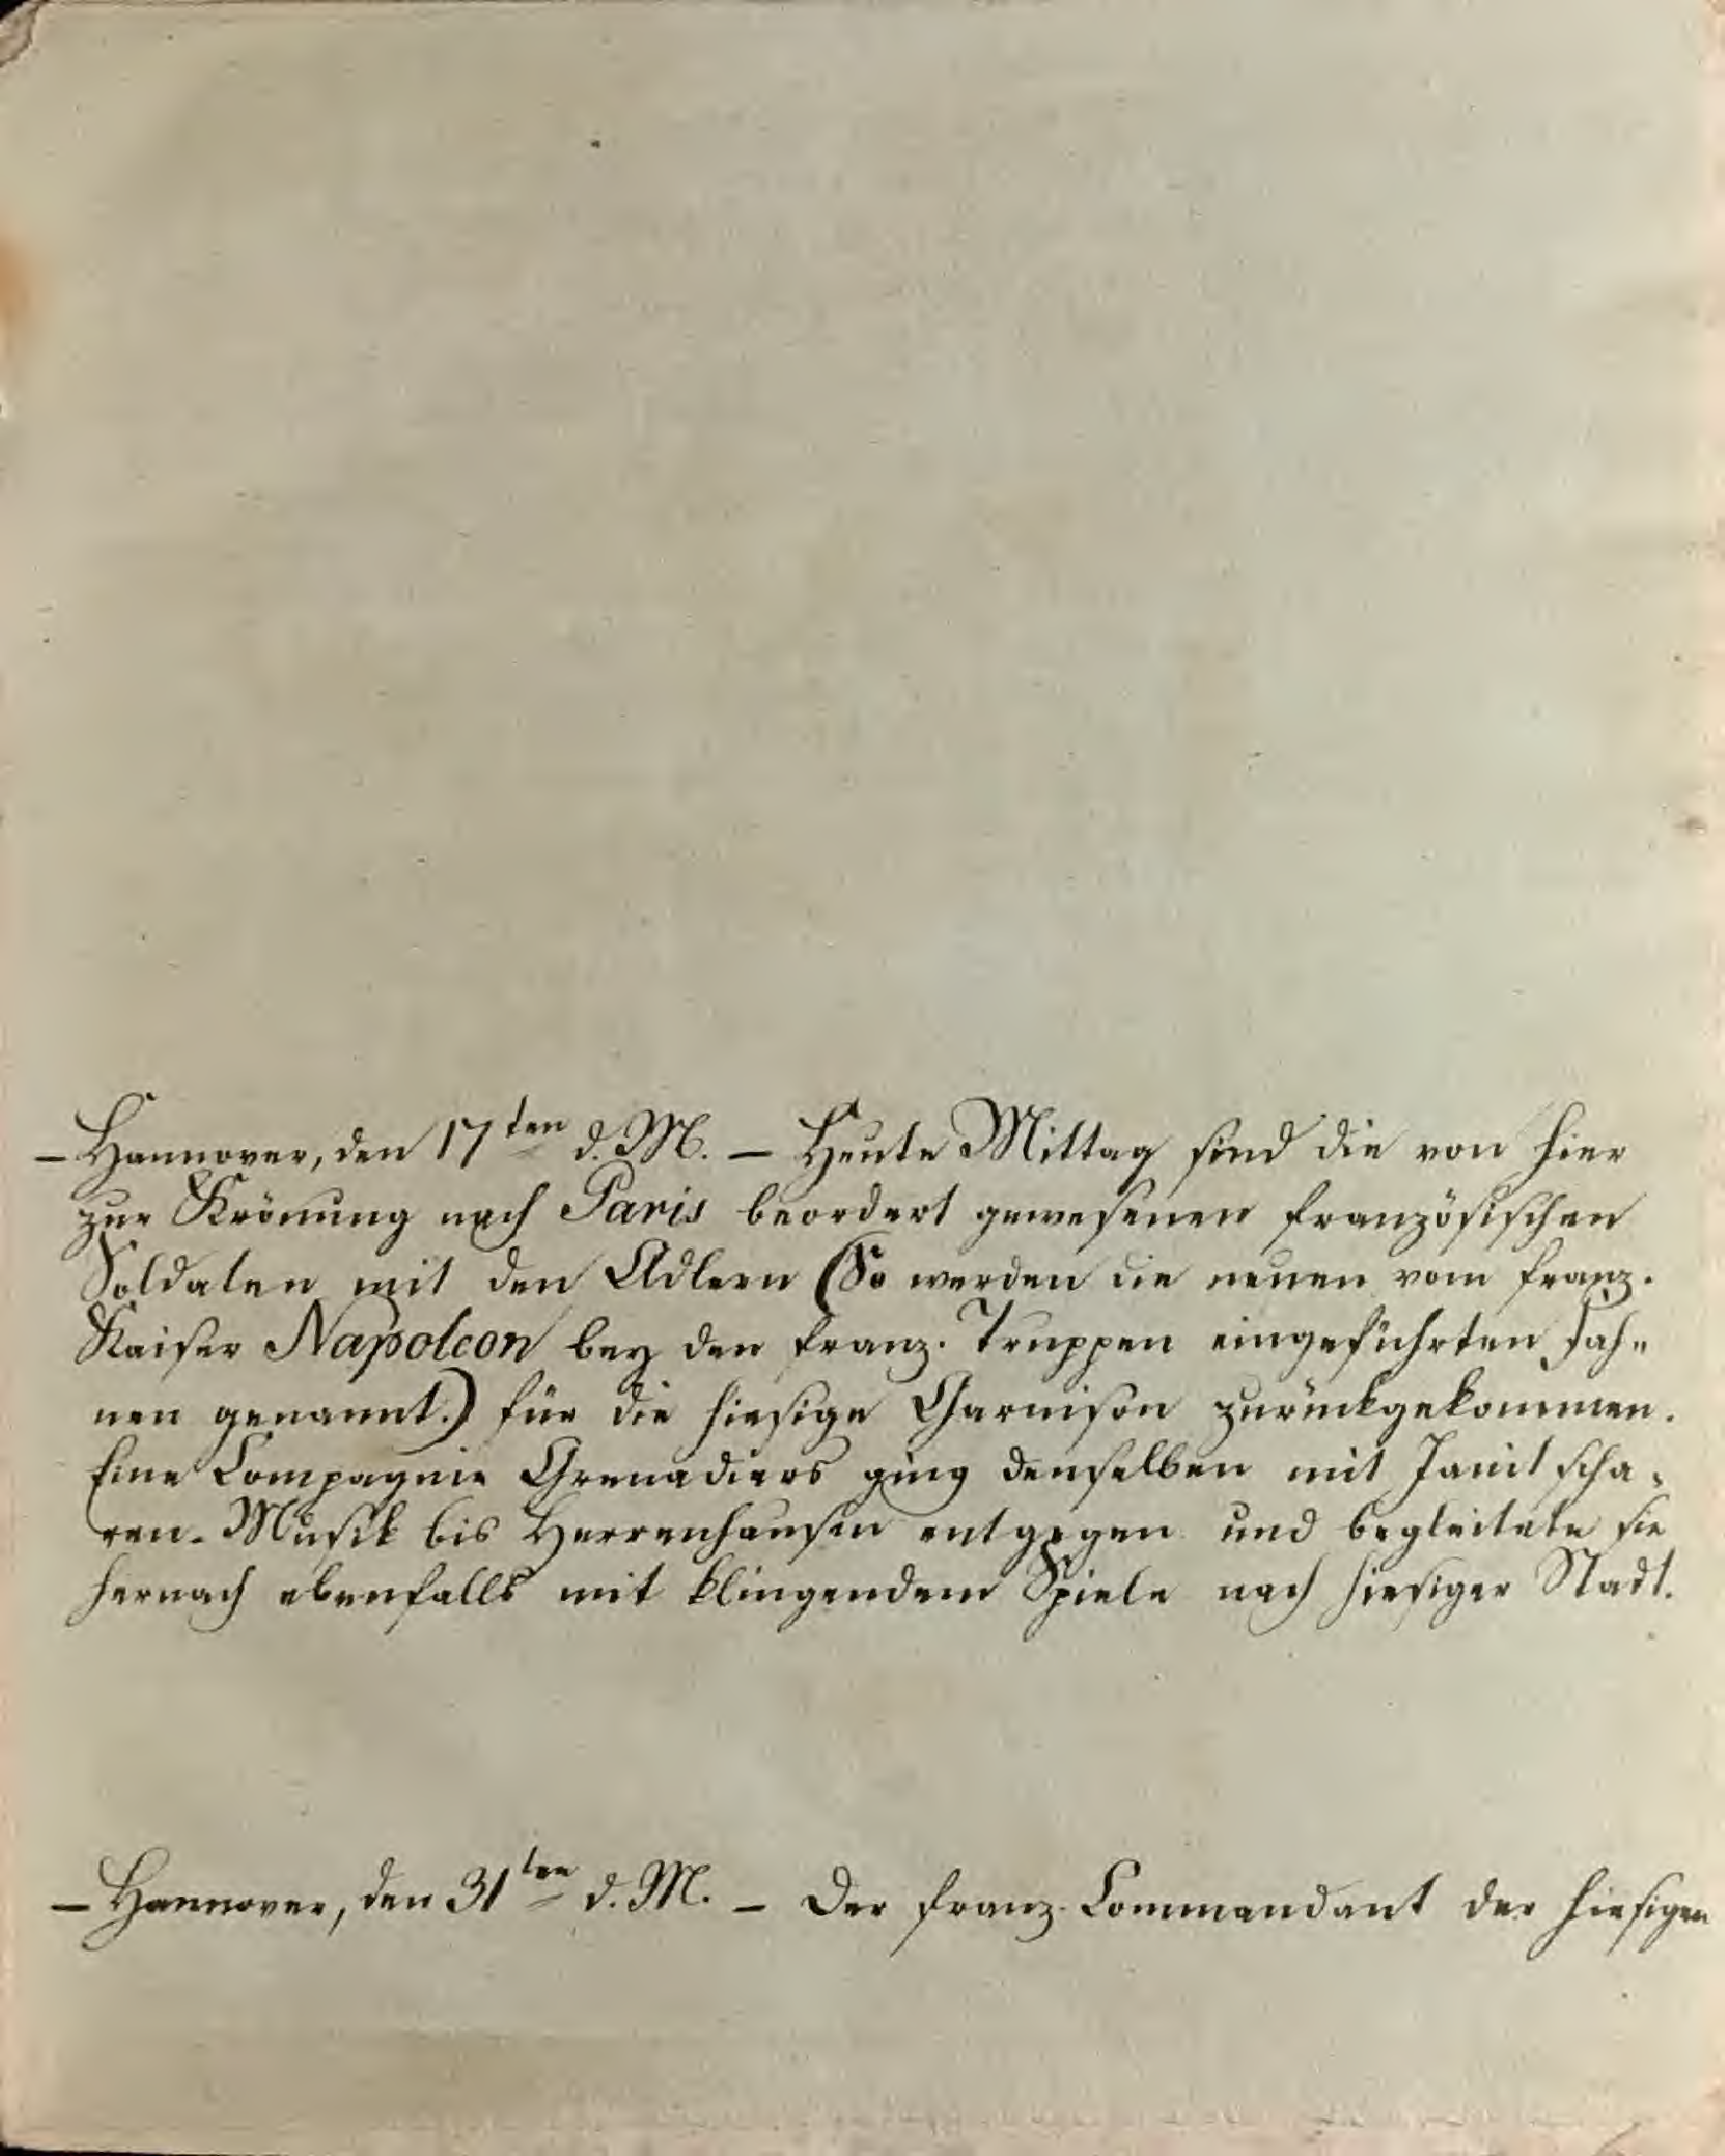 – Hannover, den 17ten d. M. – Heute Mittag sind die von hier
zur Krönung nach Paris beordert gewesenen französischen
Soldaten mit den Adlern (So werden die neuen vom franz.
Kaiser Napoleon bey den franz. Truppen eingeführten Fah-
nen genannt.) für die hiesige Garnison zurückgekommen.
Eine Compagnie Grenadiers ging denselben mit Janitscha-
ren-Musik bis Herrenhausen entgegen und begleitete sie
hernach ebenfalls mit klingendem Spiele nach hiesiger Stadt.
– Hannover, den 31ten d. M. – Der franz. Commandant der hiesigen